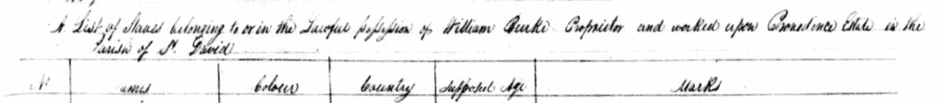 A List of Slaves belonging to or in the Lawful possession of William Burke Proprietor and worked upon Providence Estate in the
Parish of St. David
No Names Colour Country Supposed Age Marks